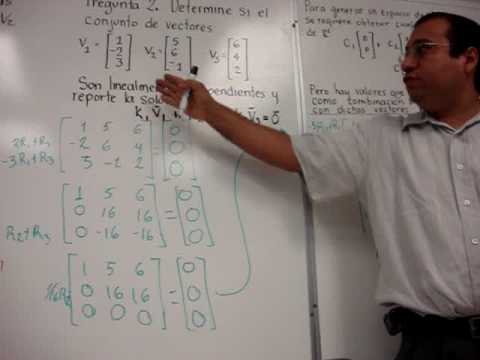 Pregunta 2. Determine si el
conjunto de vectores
V₁ = [1 -2 3] V₂ = [5 6 -1] V₃ = [6 4 2]
Son linealmente pendientes y
reporte la
k₁ V̄₁ V̄₃ = 0̄
2R₁+R₂
-3R₁+R₃
1 5 6 0
-2 6 4 = 0
3 -1 2 0
R₂+R₃
1 5 6 0
0 16 16 = 0
0 -16 -16 0
1/16R₂
1 5 6 0
0 16 16 = 0
0 0 0 0
Para generar un espacio
se requiere obtener
C₁
Pero hay valores que
como combinación
con dichos vectores